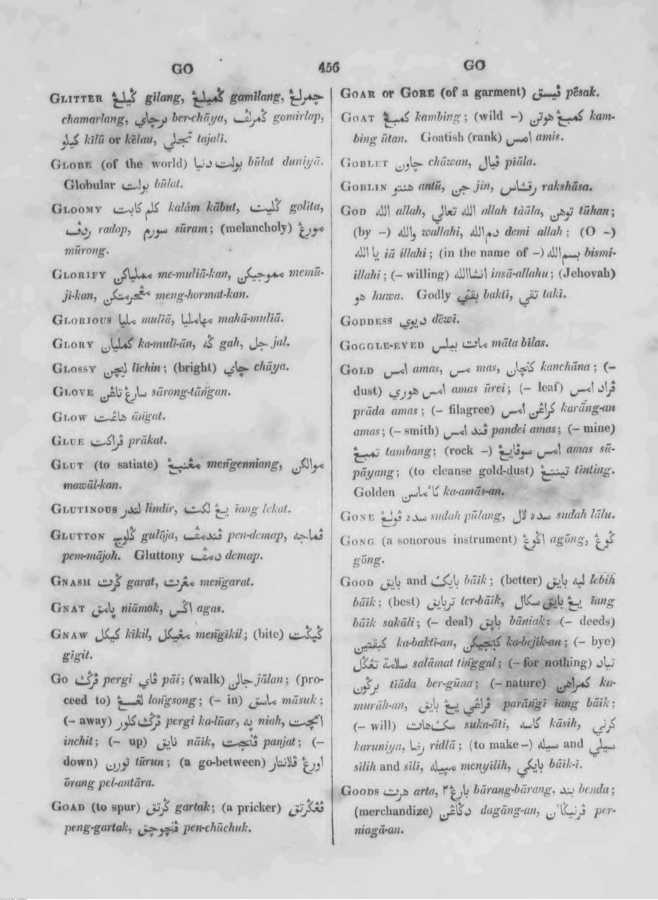 GO
456
GO
GLITTER گيلڠ gilang, گميلڠ gamīlang, چمرلڠ
chamarlang, برچاي ber-chāya, گمرلڤ gomirlap,
كيلو kīlū or kēlau, تجلي tajali.
GLOBE (of the world) بولت دنيا būlat duniyā.
Globular بولت būlat.
GLOOMY كلم كابت kalām kābut, گليت golita,
ردف radop, سورم sūram; (melancholy) مورڠ
mūrong.
GLORIFY مملياكن me-muliā-kan, مموجيكن memū-
ji-kan, meng-hormat-kan.
GLORIOUS مليا muliā, مهامليا mahā-muliā.
GLORY كمليان ka-muli-ān, گه gah, جل jal.
GLOSSY ليچن lichin; (bright) چاي chāya.
GLOVE سارڠ تاڠن sārong-tāngan.
GLOW هاڠت āngat.
GLUE ڤراكت prākat.
GLUT (to satiate) مڠنيڠ mengenniang, موالكن
mawāl-kan.
GLUTINOUS لندر lindir, يڠ لكت īang lekat.
GLUTTON گلوج gulōja, ڤندمڤ pen-demap, ڤماجه
pem-mājoh. Gluttony دمڤ demap.
GNASH گرت garat, مڠرت mengarat.
GNAT پامق niāmok, اگس agas.
GNAW كيكل kīkil, مڠيكل mengīkil; (bite) گيگت
gīgit.
GO ڤرگي pergi ڤاي pāi; (walk) جالن jālan; (pro-
ceed to) لڠسڠ longsong; (– in) ماسق māsuk;
(– away) ڤرگي كلور pergi ka-lūar, په niah, اڠچت
inchit; (– up) نايق nāik, ڤنجت panjat; (–
down) تورن tūrun; (a go-between) اورڠ ڤلانتار
ōrang pel-antāra.
GOAD (to spur) گرتق gartak; (a pricker) ڤڠگرتق
peng-gartak, ڤنچوچق pen-chūchuk.
GOAR or GORE (of a garment) ڤيسق pēsak.
GOAT كمبڠ kambing; (wild –) كمبڠ هوتن kam-
bing ūtan. Goatish (rank) امس amis.
GOBLET چاون chāwan, ڤيال piāla.
GOBLIN هنتو antū, جن jin, رقشاس rakshāsa.
GOD الله allah, الله تعالي allah tāāla, توهن tūhan;
(by –) والله wallahi, دم الله demi allah; (O –)
يا الله iā illahi; (in the name of –) بسم الله bismi-
illahi; (– willing) انشاالله insā-allahu; (Jehovah)
هو huwa. Godly بقتي bakti, تقي taki.
GODDESS ديوي dēwi.
GOGGLE-EYED مات بيلس māta bilas.
GOLD امس amas, مس mas, كنچان kanchāna; (–
dust) امس هوري amas ūrei; (– leaf) ڤراد امس
prāda amas; (– filagree) كراڠن امس karāng-an
amas; (– smith) ڤندي امس pandei amas; (– mine)
تمبڠ tambang; (rock –) امس سوڤايڠ amas sū-
pāyang; (to cleanse gold-dust) تينتڠ tinting.
Golden كاماسن ka-amās-an.
GONE سده ڤولڠ sudah pūlang, سده لال sudah lālu.
GONG (a sonorous instrument) اگوڠ agōng, گوڠ
gōng.
GOOD بايق and بايك bāik; (better) لبه بايق lebih
bāik; (best) تربايق ter-bāik, يڠ بايق سكال īang
bāik sakāli; (– deal) باپق bāniak; (– deeds)
كبقتين ka-bakti-an, كبجيكن ka-bejik-an; (– bye)
سلامة تڠگل salāmat tinggal; (– for nothing) تياد
برگون tiāda ber-gūna; (– nature) كمراهن ka-
murāh-an, ڤراڠي يڠ بايق parāngi īang bāik;
(– will) سك هات suka-āti, كاسه kāsih, كرني
karuniya, رضا ridlā; (to make –) سيله and سيلي
sīlih and sīli, مپيله menyīlih, بايكي bāik-i.
GOODS هرت arta, بارڠ٢ bārang-bārang, بند benda;
(merchandize) دگاڠن dagāng-an, ڤرنيگان per-
niagā-an.